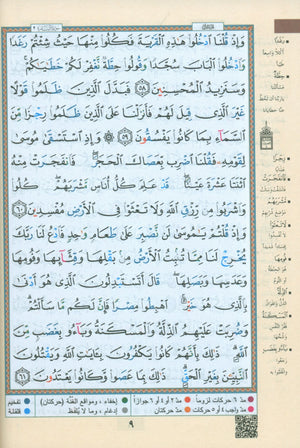 وَإِذْ قُلْنَا ادْخُلُوا هَٰذِهِ الْقَرْيَةَ فَكُلُوا مِنْهَا حَيْثُ شِئْتُمْ رَغَدًا
وَادْخُلُوا الْبَابَ سُجَّدًا وَقُولُوا حِطَّةٌ نَّغْفِرْ لَكُمْ خَطَايَاكُمْ ۚ
وَسَنَزِيدُ الْمُحْسِنِينَ ٥٨ فَبَدَّلَ الَّذِينَ ظَلَمُوا قَوْلًا
غَيْرَ الَّذِي قِيلَ لَهُمْ فَأَنزَلْنَا عَلَى الَّذِينَ ظَلَمُوا رِجْزًا مِّنَ
السَّمَاءِ بِمَا كَانُوا يَفْسُقُونَ ٥٩ ۞ وَإِذِ اسْتَسْقَىٰ مُوسَىٰ
لِقَوْمِهِ فَقُلْنَا اضْرِب بِّعَصَاكَ الْحَجَرَ ۖ فَانفَجَرَتْ مِنْهُ
اثْنَتَا عَشْرَةَ عَيْنًا ۖ قَدْ عَلِمَ كُلُّ أُنَاسٍ مَّشْرَبَهُمْ ۖ كُلُوا
وَاشْرَبُوا مِن رِّزْقِ اللَّهِ وَلَا تَعْثَوْا فِي الْأَرْضِ مُفْسِدِينَ ٦٠
وَإِذْ قُلْتُمْ يَا مُوسَىٰ لَن نَّصْبِرَ عَلَىٰ طَعَامٍ وَاحِدٍ فَادْعُ لَنَا رَبَّكَ
يُخْرِجْ لَنَا مِمَّا تُنبِتُ الْأَرْضُ مِن بَقْلِهَا وَقِثَّائِهَا وَفُومِهَا
وَعَدَسِهَا وَبَصَلِهَا ۖ قَالَ أَتَسْتَبْدِلُونَ الَّذِي هُوَ أَدْنَىٰ
بِالَّذِي هُوَ خَيْرٌ ۚ اهْبِطُوا مِصْرًا فَإِنَّ لَكُم مَّا سَأَلْتُمْ ۗ
وَضُرِبَتْ عَلَيْهِمُ الذِّلَّةُ وَالْمَسْكَنَةُ وَبَاءُو بِغَضَبٍ مِّنَ
اللَّهِ ۗ ذَٰلِكَ بِأَنَّهُمْ كَانُوا يَكْفُرُونَ بِآيَاتِ اللَّهِ وَيَقْتُلُونَ
النَّبِيِّينَ بِغَيْرِ الْحَقِّ ۗ ذَٰلِكَ بِمَا عَصَوا وَّكَانُوا يَعْتَدُونَ ٦١
رَغَدًا
رِجْزًا
فَانفَجَرَتْ
مَشْرَبَهُمْ
لَا تَعْثَوْا
فُومِهَا
الذِّلَّةُ
الْمَسْكَنَةُ
مد ٦ حركات لزوماً
مد ٢ أو ٤ أو ٦ جوازاً
إخفاء، ومواقع الغنة (حركتان)
تفخيم
مد واجب ٤ أو ٥ حركات
مد حركتان
إدغام، وما لا يلفظ
قلقلة
٩